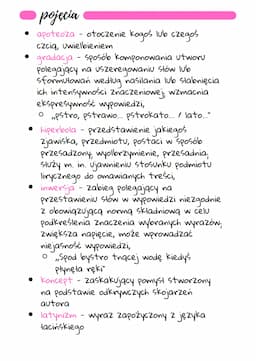 pojęcia
• apoteoza - otoczenie kogoś lub czegoś
czcią, uwielbieniem
• gradacja - sposób komponowania utworu
polegający na uszeregowaniu słów lub
sformułowań według nasilania lub słabnięcia
ich intensywności znaczeniowej, wzmacnia
ekspresywność wypowiedzi,
○ „pstro, pstrawo... pstrokato... / lato..."
• hiperbola - przedstawienie jakiegoś
zjawiska, przedmiotu, postaci w sposób
przesadzony, wyolbrzymienie, przesadnia,
służy m. in. ujawnieniu stosunku podmiotu
lirycznego do omawianych treści,
• inwersja - zabieg polegający na
przestawieniu słów w wypowiedzi niezgodnie
z obowiązującą normą składniową w celu
podkreślenia znaczenia wybranych wyrazów,
zwiększa napięcie, może wprowadzać
niejasność wypowiedzi,
○ „Spod bystro tnącej wodę kiedyś
płynęła ręki"
• koncept - zaskakujący pomysł stworzony
na podstawie odkrywczych skojarzeń
autora
• latynizm - wyraz zapożyczony z języka
łacińskiego